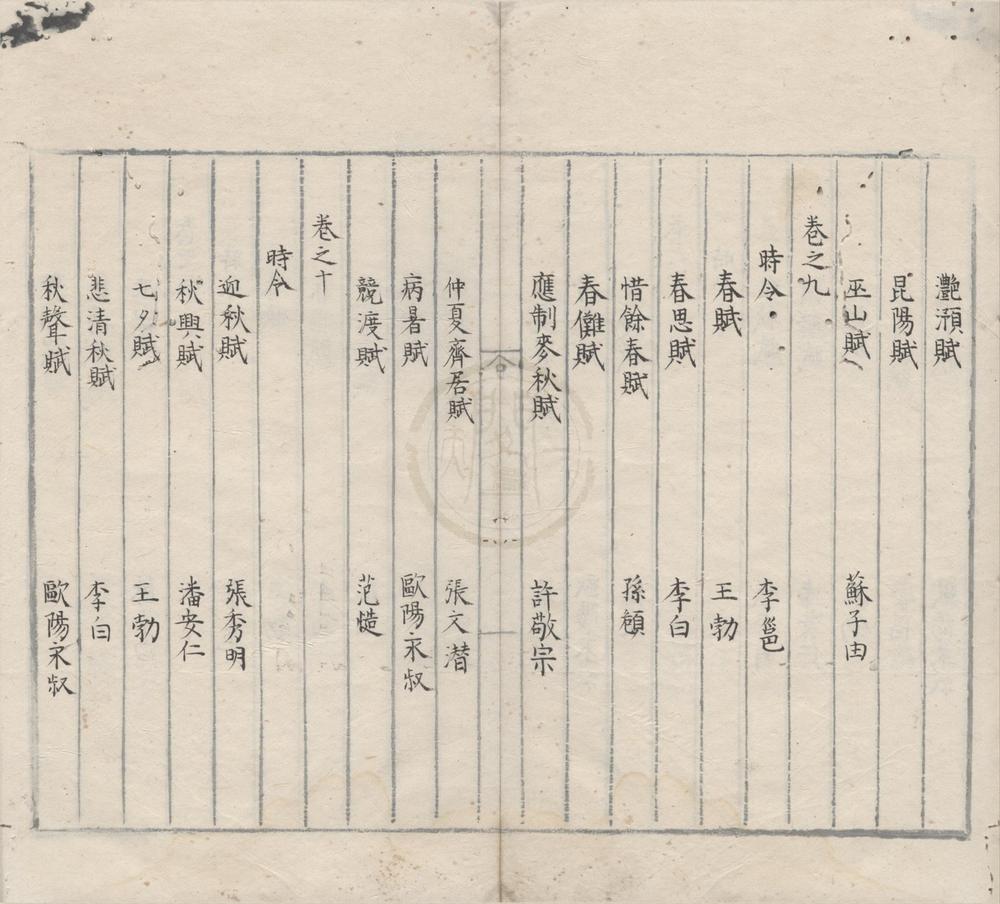 灧澦賦
昆陽賦
巫山賦 蘇子由
卷之九
時令 李邕
春賦 王勃
春思賦 李白
惜餘春賦 孫頠
春儺賦
應制麥秋賦 許敬宗
仲夏齋居賦 張文潛
病暑賦 歐陽永叔
競渡賦 范慥
卷之十
時令
迎秋賦 張秀明
秋興賦 潘安仁
七夕賦 王勃
悲清秋賦 李白
秋聲賦 歐陽永叔